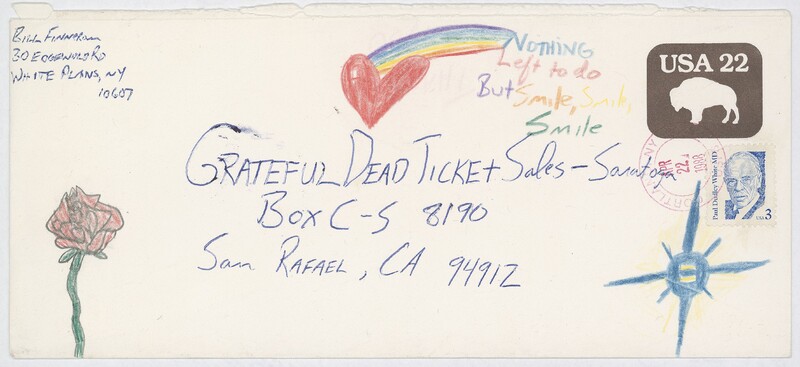 Bill Finneran
30 Edgewold Rd
White Plans, NY
10607
Nothing
Left to do
But Smile, Smile,
Smile
USA 22
Grateful Dead Ticket Sales - Saratoga
Box C-S 8190
San Rafael, CA 94912
NY
APR
22
1988
Paul Dudley White MD
USA 3